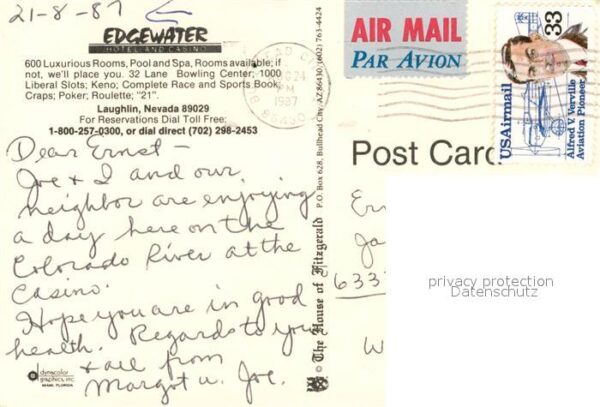 21-8-87
EDGEWATER
HOTEL AND CASINO
600 Luxurious Rooms, Pool and Spa, Rooms available; if
not, we'll place you. 32 Lane Bowling Center; 1000
Liberal Slots; Keno; Complete Race and Sports Book;
Craps; Poker; Roulette; "21".
Laughlin, Nevada 89029
For Reservations Dial Toll Free:
1-800-257-0300, or dial direct (702) 298-2453
Dear Ernst -
Joe & I and our
neighbor are enjoying
a day here on the
Colorado River at the
Casino.
Hope you are in good
health. Regards to your
& all from
Margot u. Joe.
dynacolor
graphics, inc.
MIAMI, FLORIDA
© The House of Fitzgerald P.O. Box 628, Bullhead City, AZ 86430 (602) 763-4424
24
PM
1987
86430
AIR MAIL
PAR AVION
USAirmail
33
Alfred V. Verville
Aviation Pioneer
Post Card
Er
Ja
633
W
privacy protection
Datenschutz